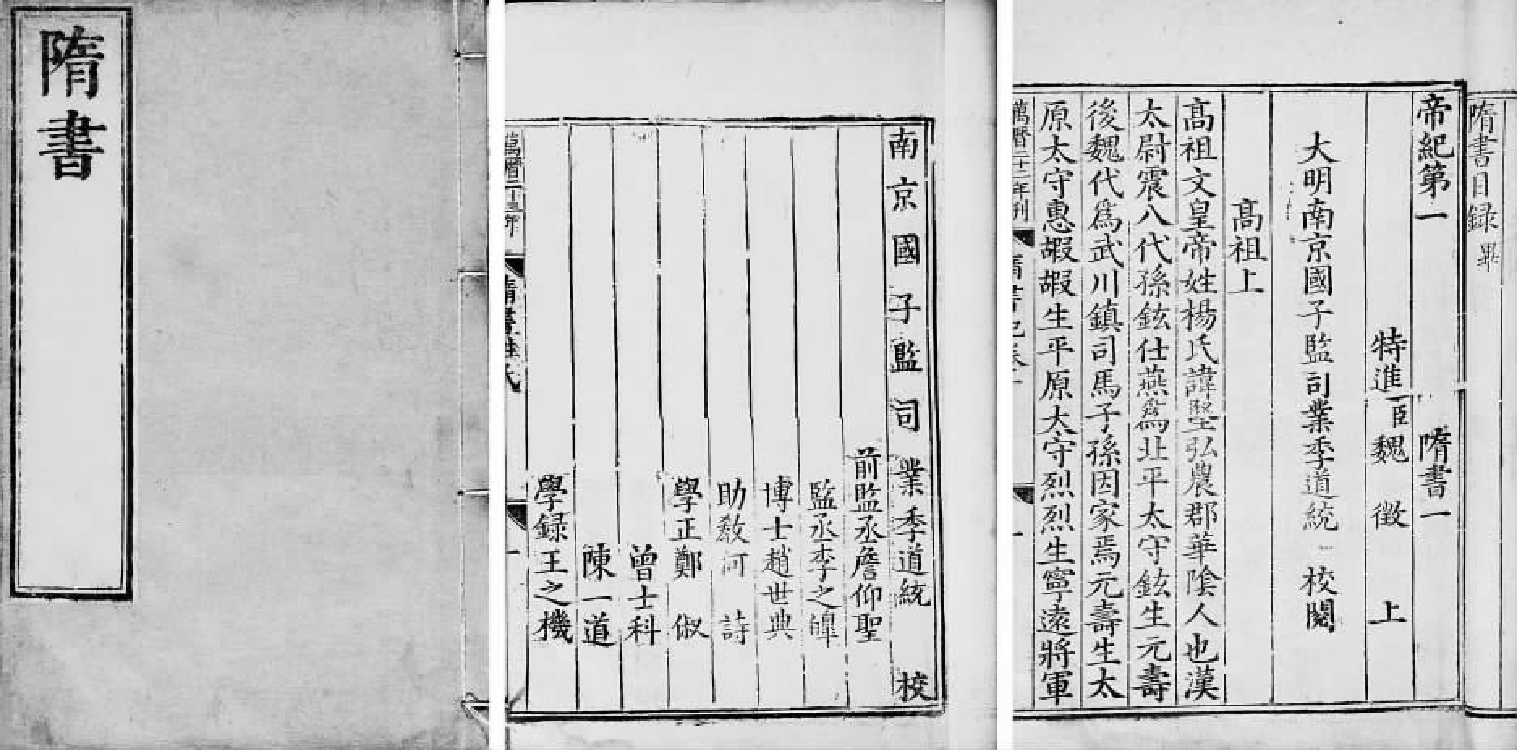 隋書
南京國子監司業季道統 校
前監丞詹仰聖
監丞李之皥
博士趙世典
助教何 詩
學正鄭 俶
曾士科
陳一道
學録王之機
隋書目録畢
帝紀第一 隋書一
特進臣魏 徵 上
大明南京國子監司業季道統 校閱
高祖上
髙祖文皇帝姓楊氏諱堅弘農郡華隂人也漢
太尉震八代孫鉉仕燕爲北平太守鉉生元壽
後魏代爲武川鎮司馬子孫因家焉元壽生太
原太守惠嘏嘏生平原太守烈烈生寧逺將軍
萬曆二十二年刊